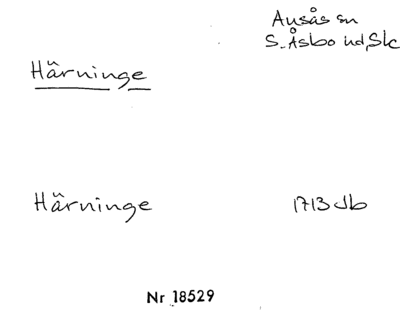 Ausås sn
S. Åsbo hd, Sk
Härninge
Härninge 1713 Jb
Nr 18529